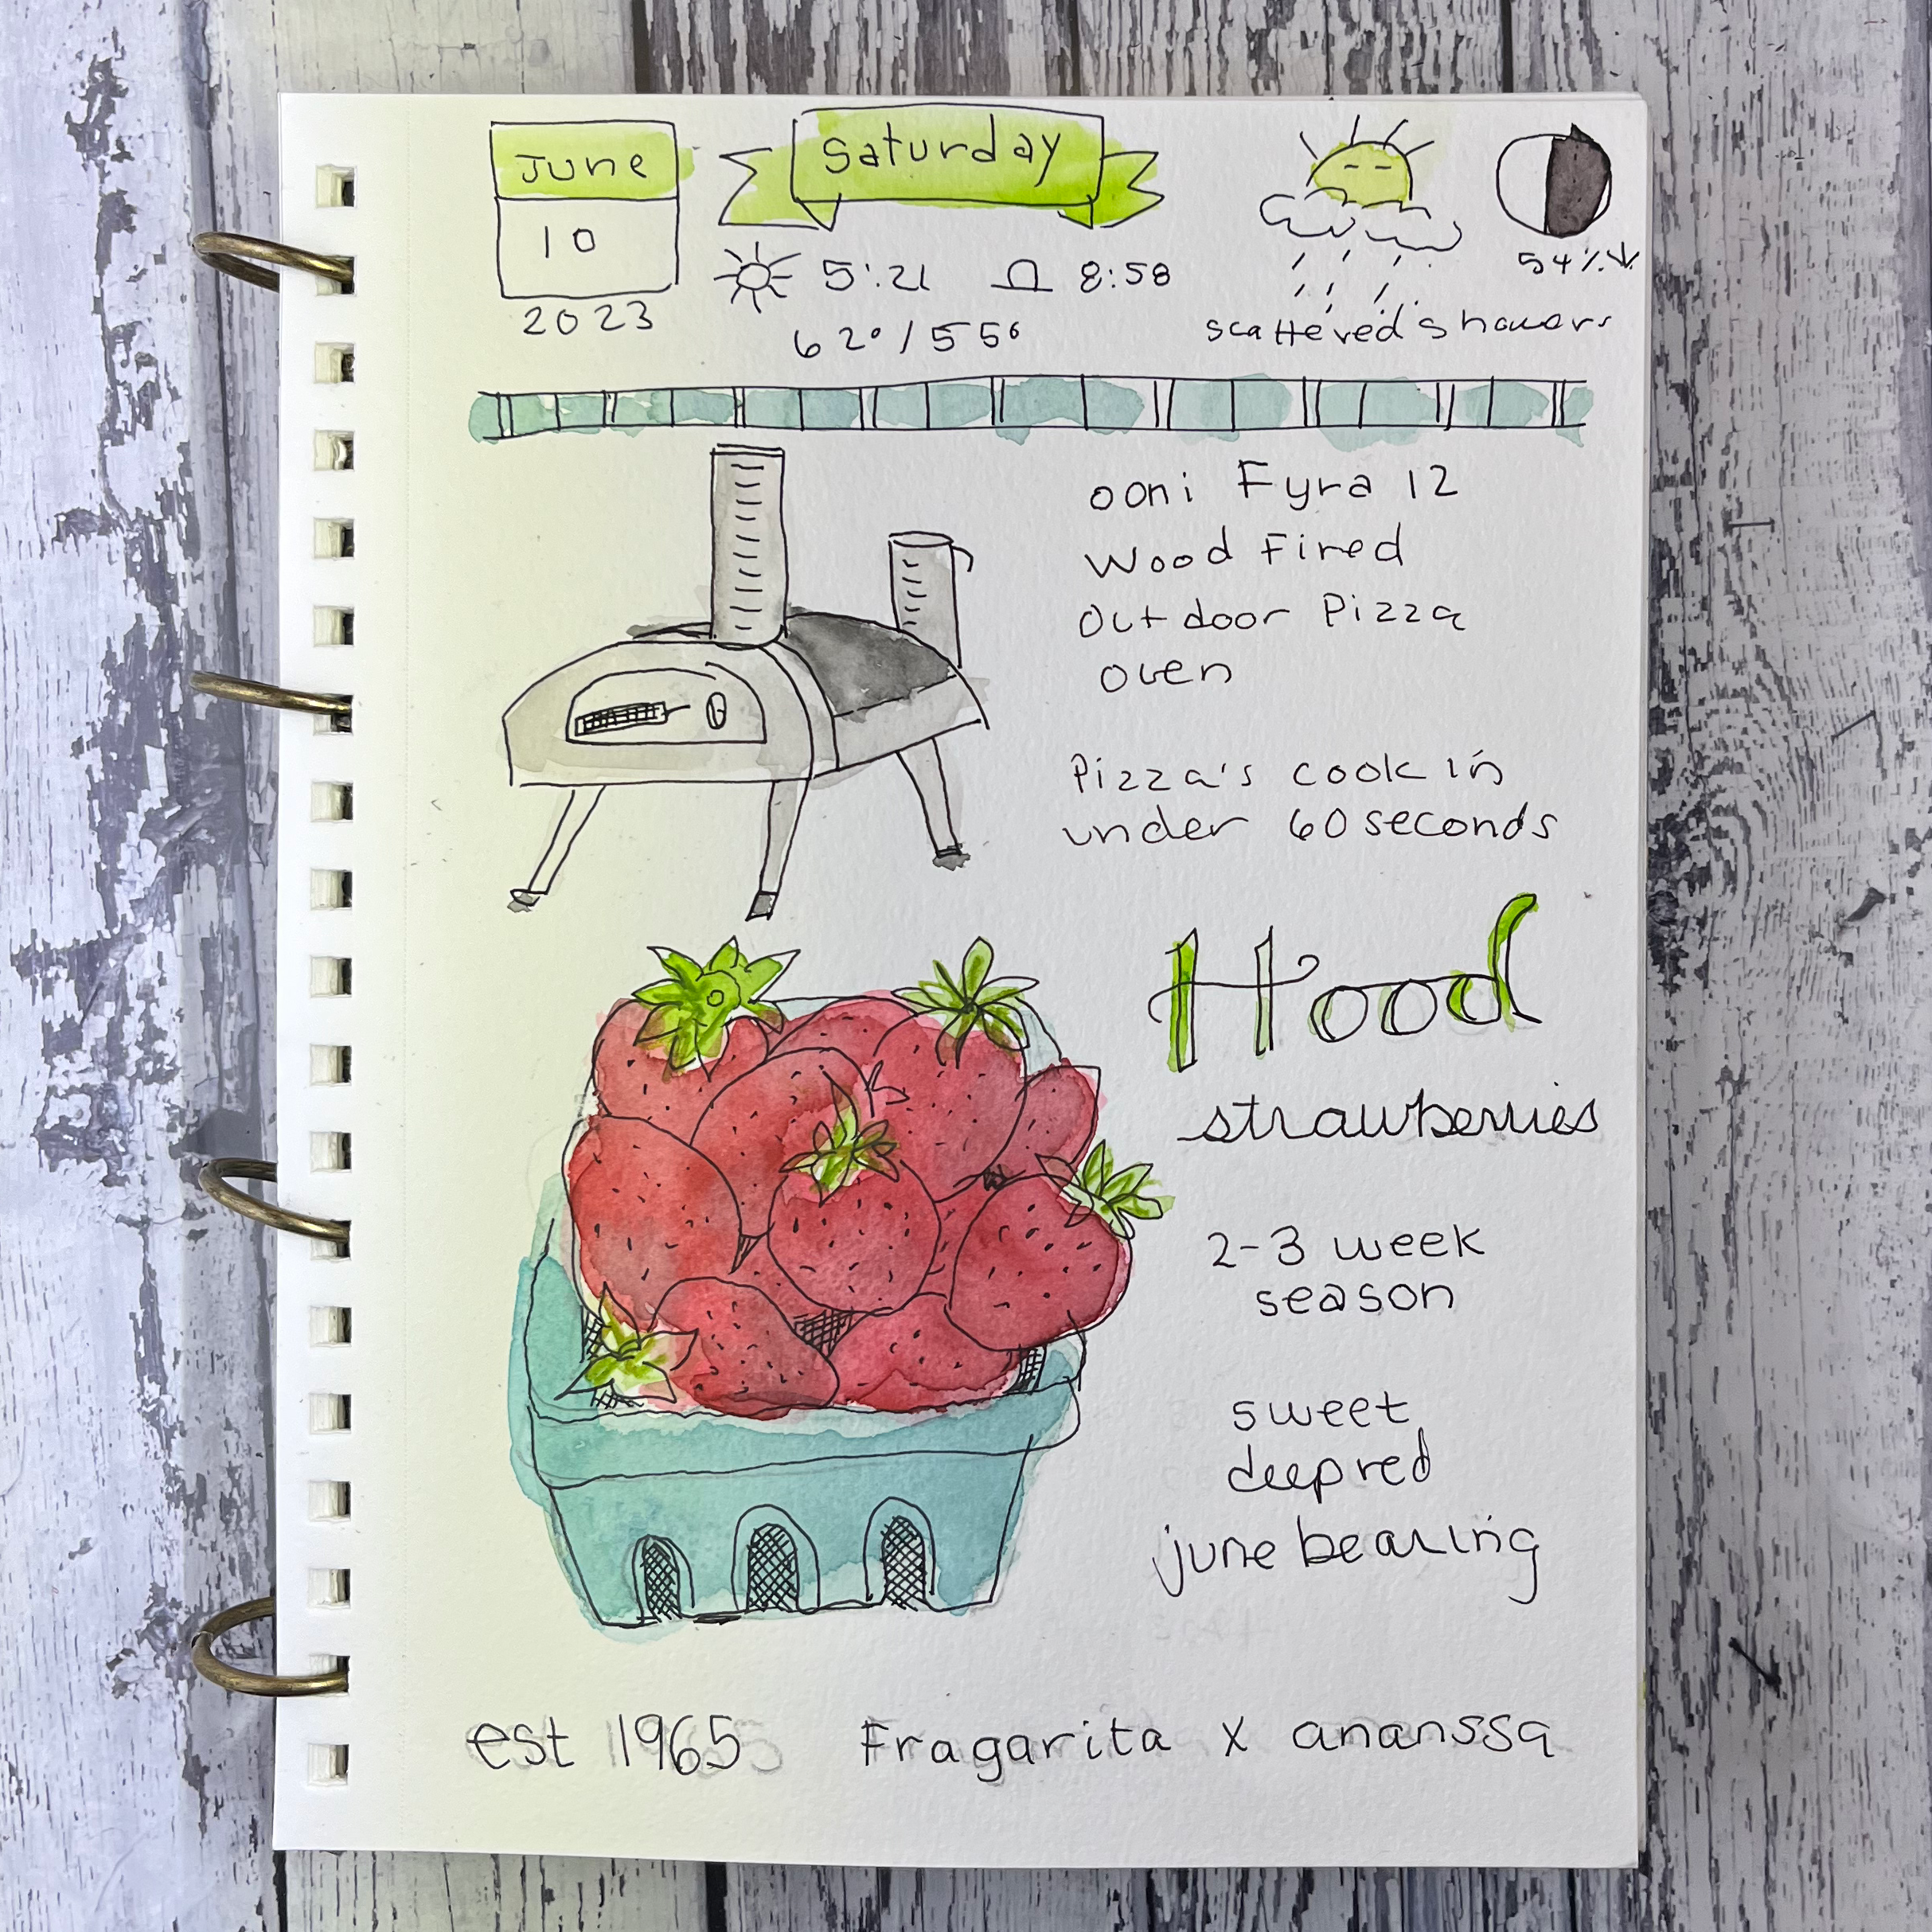 June
10
2023
Saturday
5:21 8:58
62° / 55°
scattered showers
54%↓
ooni Fyra 12
Wood Fired
Outdoor Pizza
oven
Pizza's cook in
under 60 seconds
Hood
strawberries
2-3 week
season
sweet
deep red
june bearing
est 1965 Fragarita x ananssa